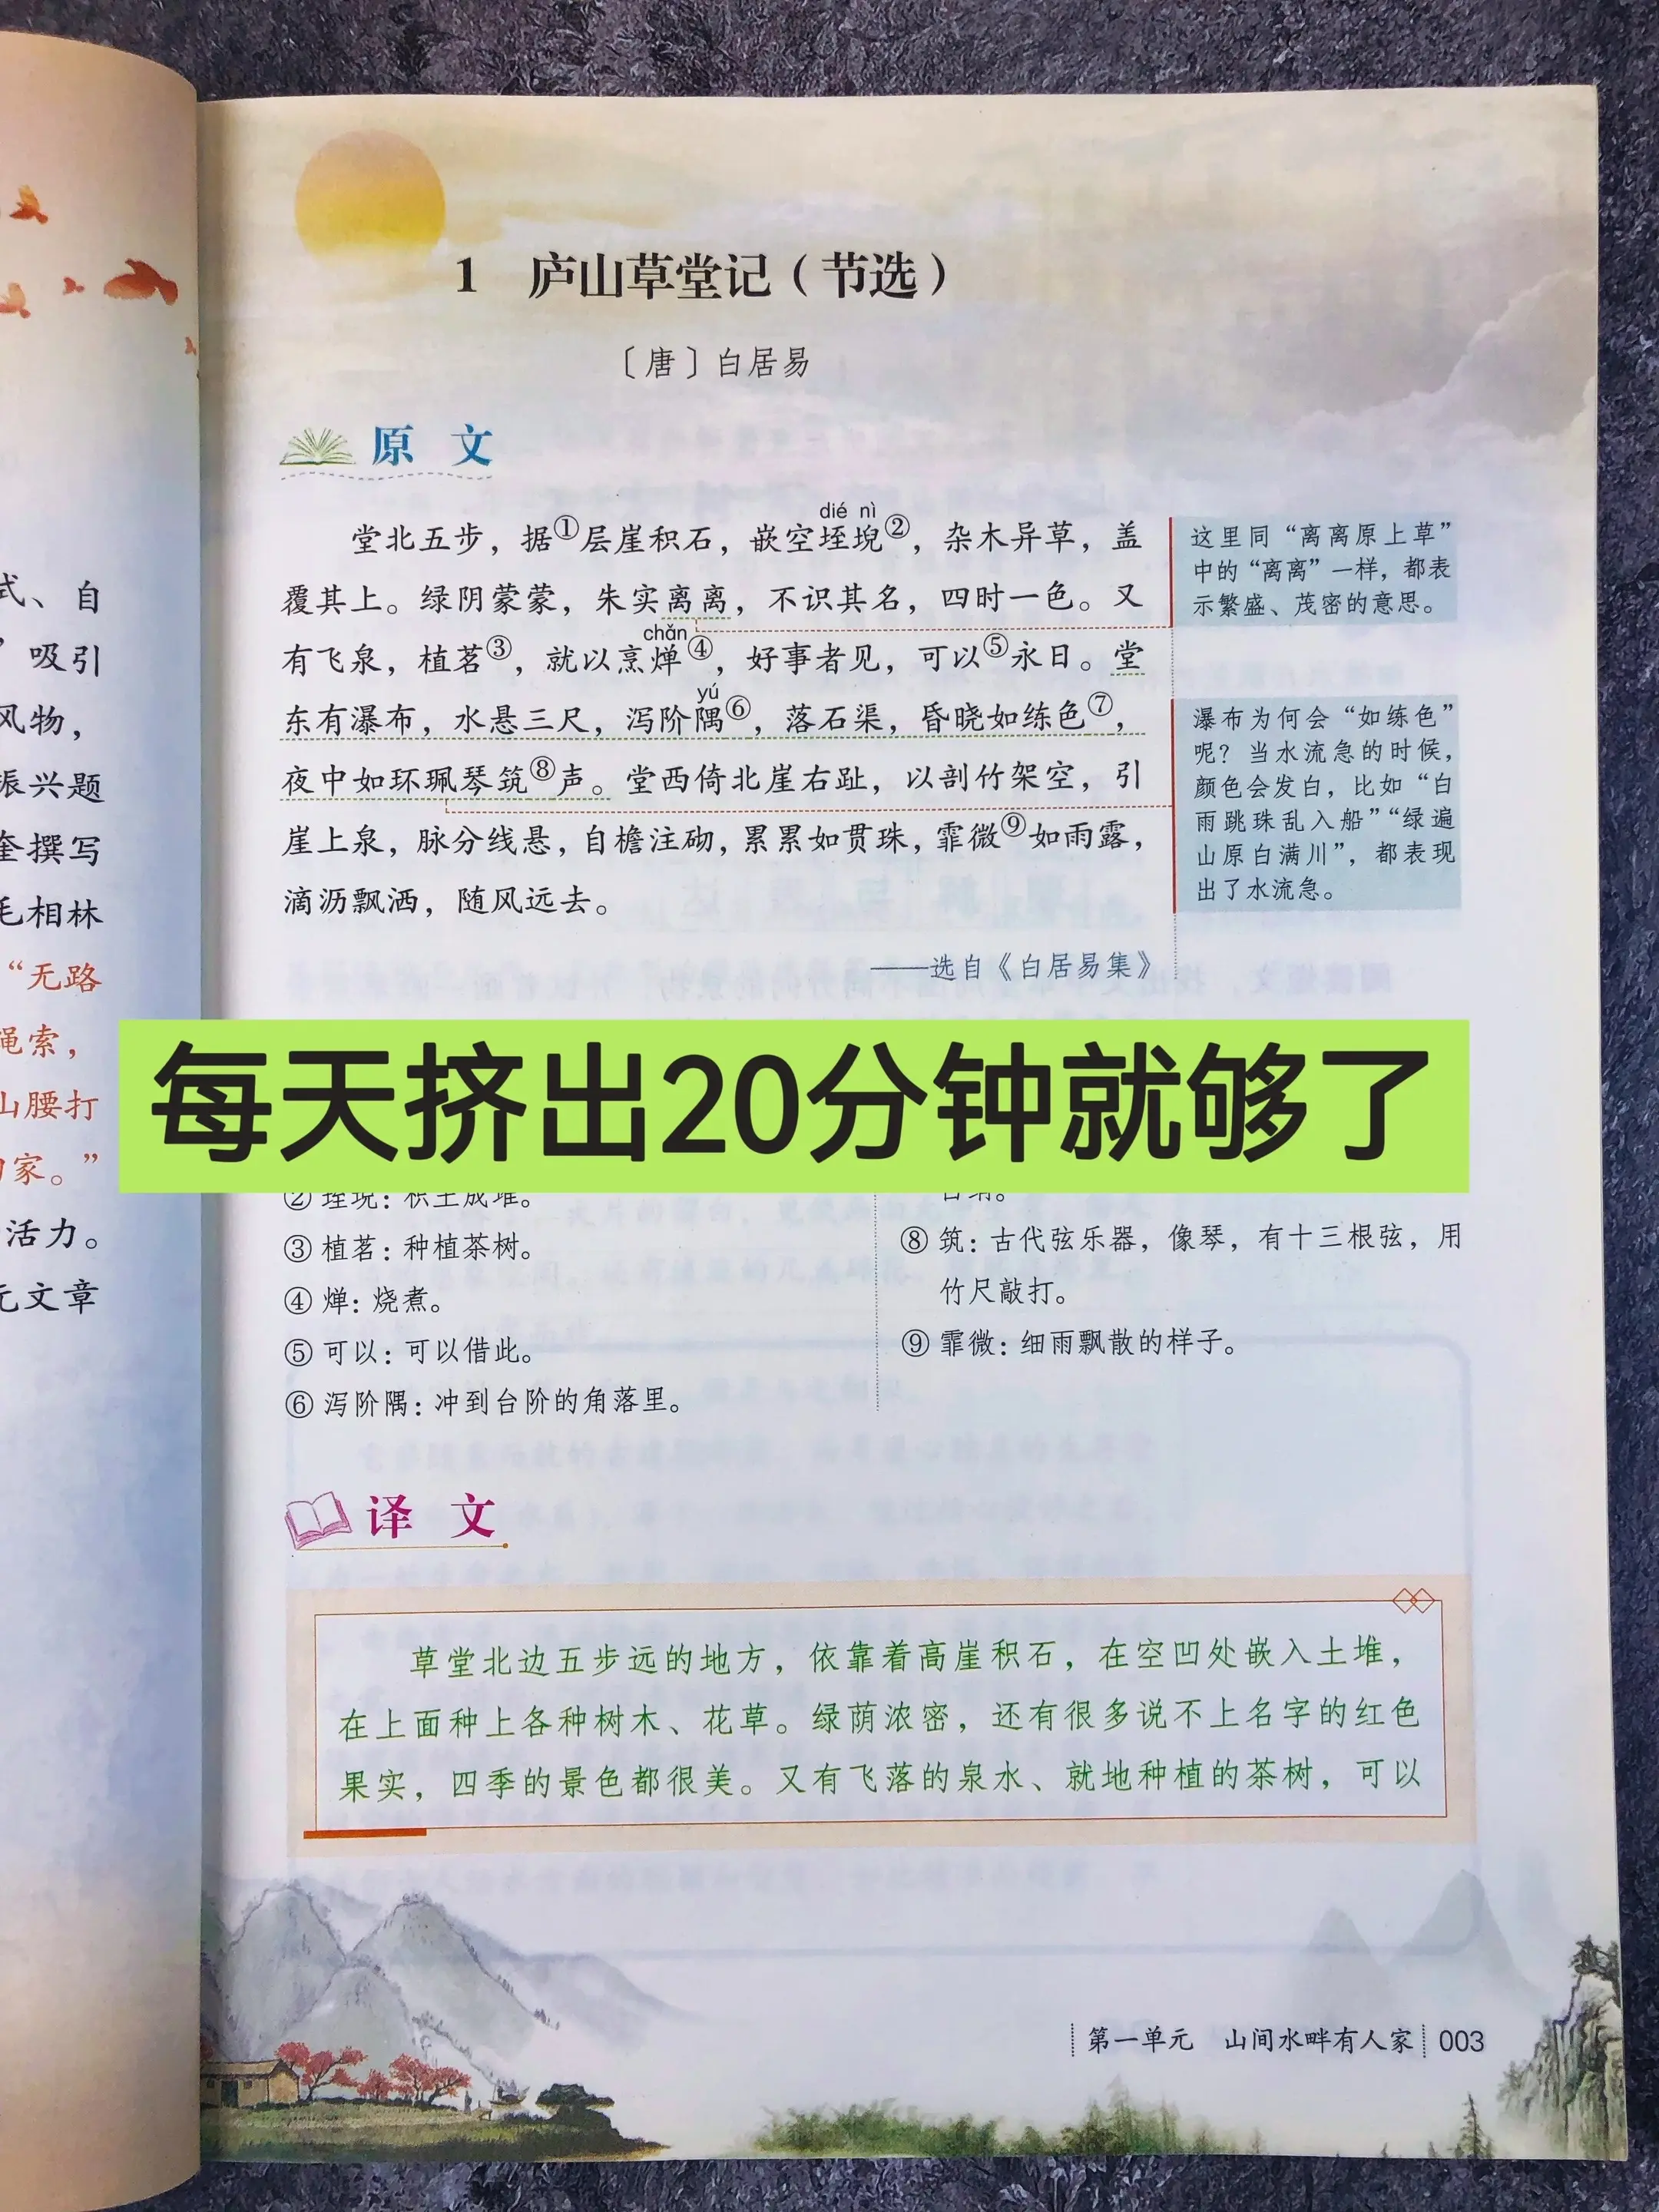 式、自
”吸引
风物，
振兴题
奎撰写
毛相林
“无路
绳索，
山腰打
家。”
活力。
元文章
1 庐山草堂记（节选）
〔唐〕白居易
原 文
dié nì
堂北五步，据①层崖积石，嵌空垤堄②，杂木异草，盖
覆其上。绿阴蒙蒙，朱实离离，不识其名，四时一色。又
chǎn
有飞泉，植茗③，就以烹燀④，好事者见，可以⑤永日。堂
yú
东有瀑布，水悬三尺，泻阶隅⑥，落石渠，昏晓如练色⑦，
夜中如环珮琴筑⑧声。堂西倚北崖右趾，以剖竹架空，引
崖上泉，脉分线悬，自檐注砌，累累如贯珠，霏微⑨如雨露，
滴沥飘洒，随风远去。
——选自《白居易集》
这里同“离离原上草”
中的“离离”一样，都表
示繁盛、茂密的意思。
瀑布为何会“如练色”
呢？当水流急的时候，
颜色会发白，比如“白
雨跳珠乱入船”“绿遍
山原白满川”，都表现
出了水流急。
每天挤出20分钟就够了
② 垤堄：积土成堆。
③ 植茗：种植茶树。
④ 燀：烧煮。
⑤ 可以：可以借此。
⑥ 泻阶隅：冲到台阶的角落里。
⑧ 筑：古代弦乐器，像琴，有十三根弦，用
竹尺敲打。
⑨ 霏微：细雨飘散的样子。
译 文
草堂北边五步远的地方，依靠着高崖积石，在空凹处嵌入土堆，
在上面种上各种树木、花草。绿荫浓密，还有很多说不上名字的红色
果实，四季的景色都很美。又有飞落的泉水、就地种植的茶树，可以
第一单元 山间水畔有人家 003